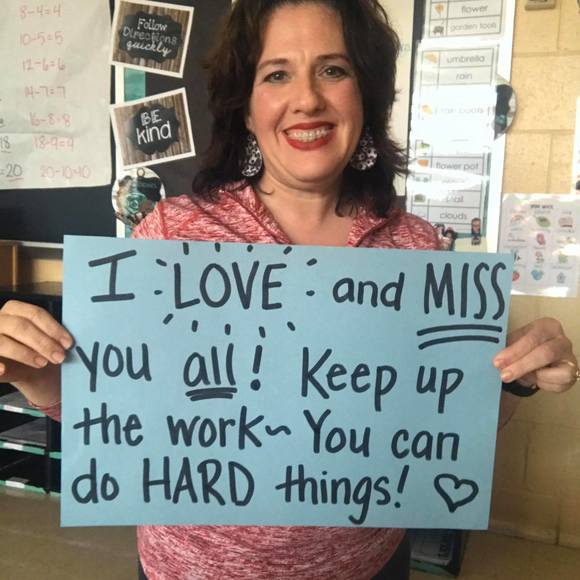 8-4=4
10-5=5
12-6=6
14-7=7
16-8=8
18-9=9
20-10=10
Follow
Directions
quickly
BE
kind
flower
garden tools
umbrella
rain
rain boots
flower pot
clouds
I LOVE and MISS
you all! Keep up
the work~ You can
do HARD things! ♡